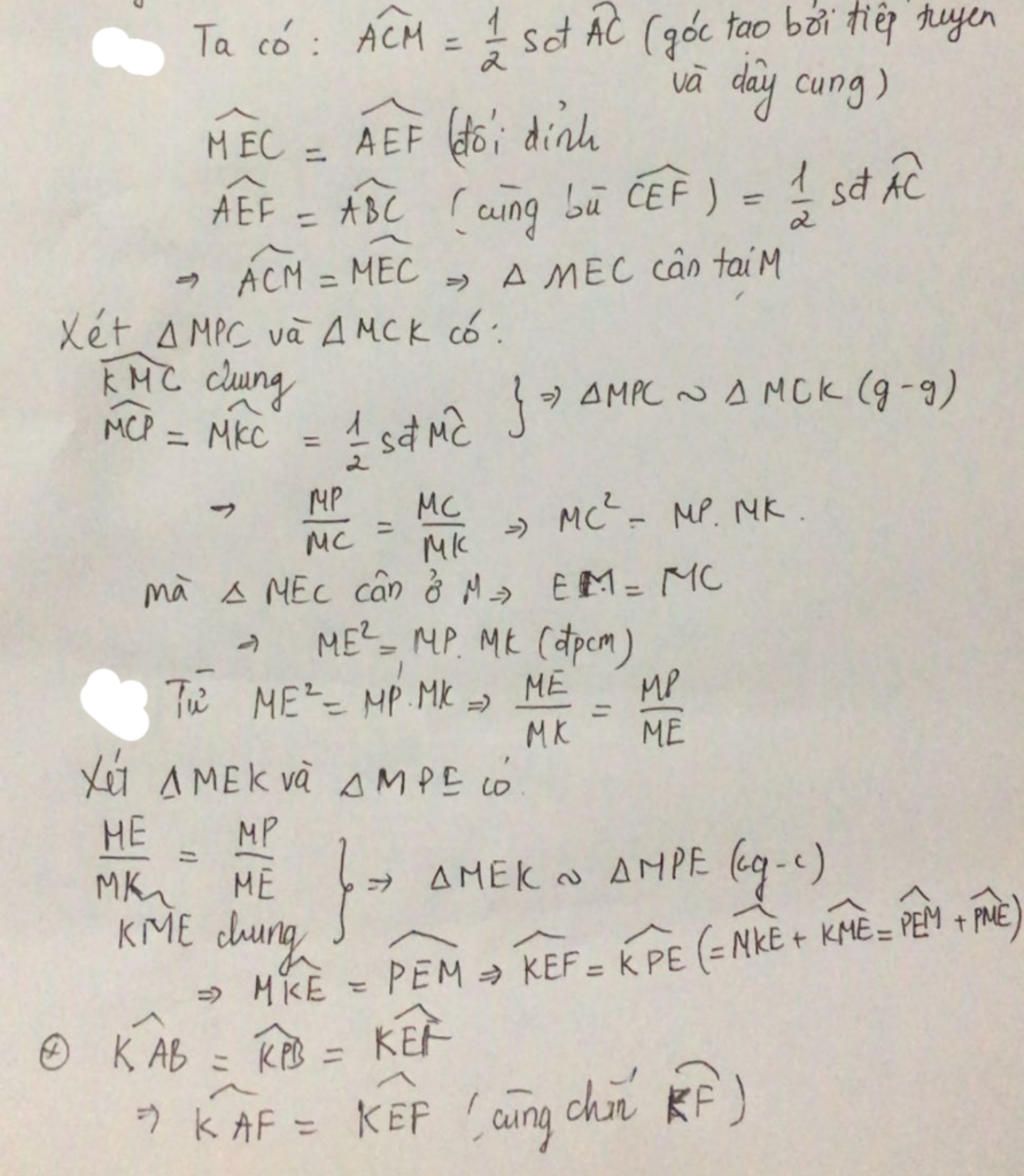 Ta có : \widehat{ACM} = \frac{1}{2} sđ \widehat{AC} (góc tạo bởi tiếp tuyen
và dây cung)
\widehat{MEC} = \widehat{AEF} (đối đỉnh
\widehat{AEF} = \widehat{ABC} (cùng bù \widehat{CEF}) = \frac{1}{2} sđ \widehat{AC}
⇒ \widehat{ACM} = \widehat{MEC} ⇒ Δ MEC cân tại M
Xét Δ MPC và Δ MCK có:
\widehat{KMC} chung
\widehat{MCP} = \widehat{MKC} = \frac{1}{2} sđ \widehat{MC} } ⇒ ΔMPC ∼ Δ MCK (g-g)
→ \frac{MP}{MC} = \frac{MC}{MK} ⇒ MC² = MP. MK.
mà Δ MEC cân ở M ⇒ EM = MC
→ ME² = MP. MK (đpcm)
Từ ME² = MP.MK ⇒ \frac{ME}{MK} = \frac{MP}{ME}
Xét ΔMEK và ΔMPE có
\frac{ME}{MK} = \frac{MP}{ME}
\widehat{KME} chung } ⇒ ΔMEK ∼ ΔMPE (cg-c)
⇒ \widehat{MKE} = \widehat{PEM} ⇒ \widehat{KEF} = \widehat{KPE} (= \widehat{MKE} + \widehat{KME} = \widehat{PEM} + \widehat{PME})
⊕ \widehat{KAB} = \widehat{KPB} = \widehat{KEF}
⇒ \widehat{KAF} = \widehat{KEF} (cùng chắn \widehat{KF})